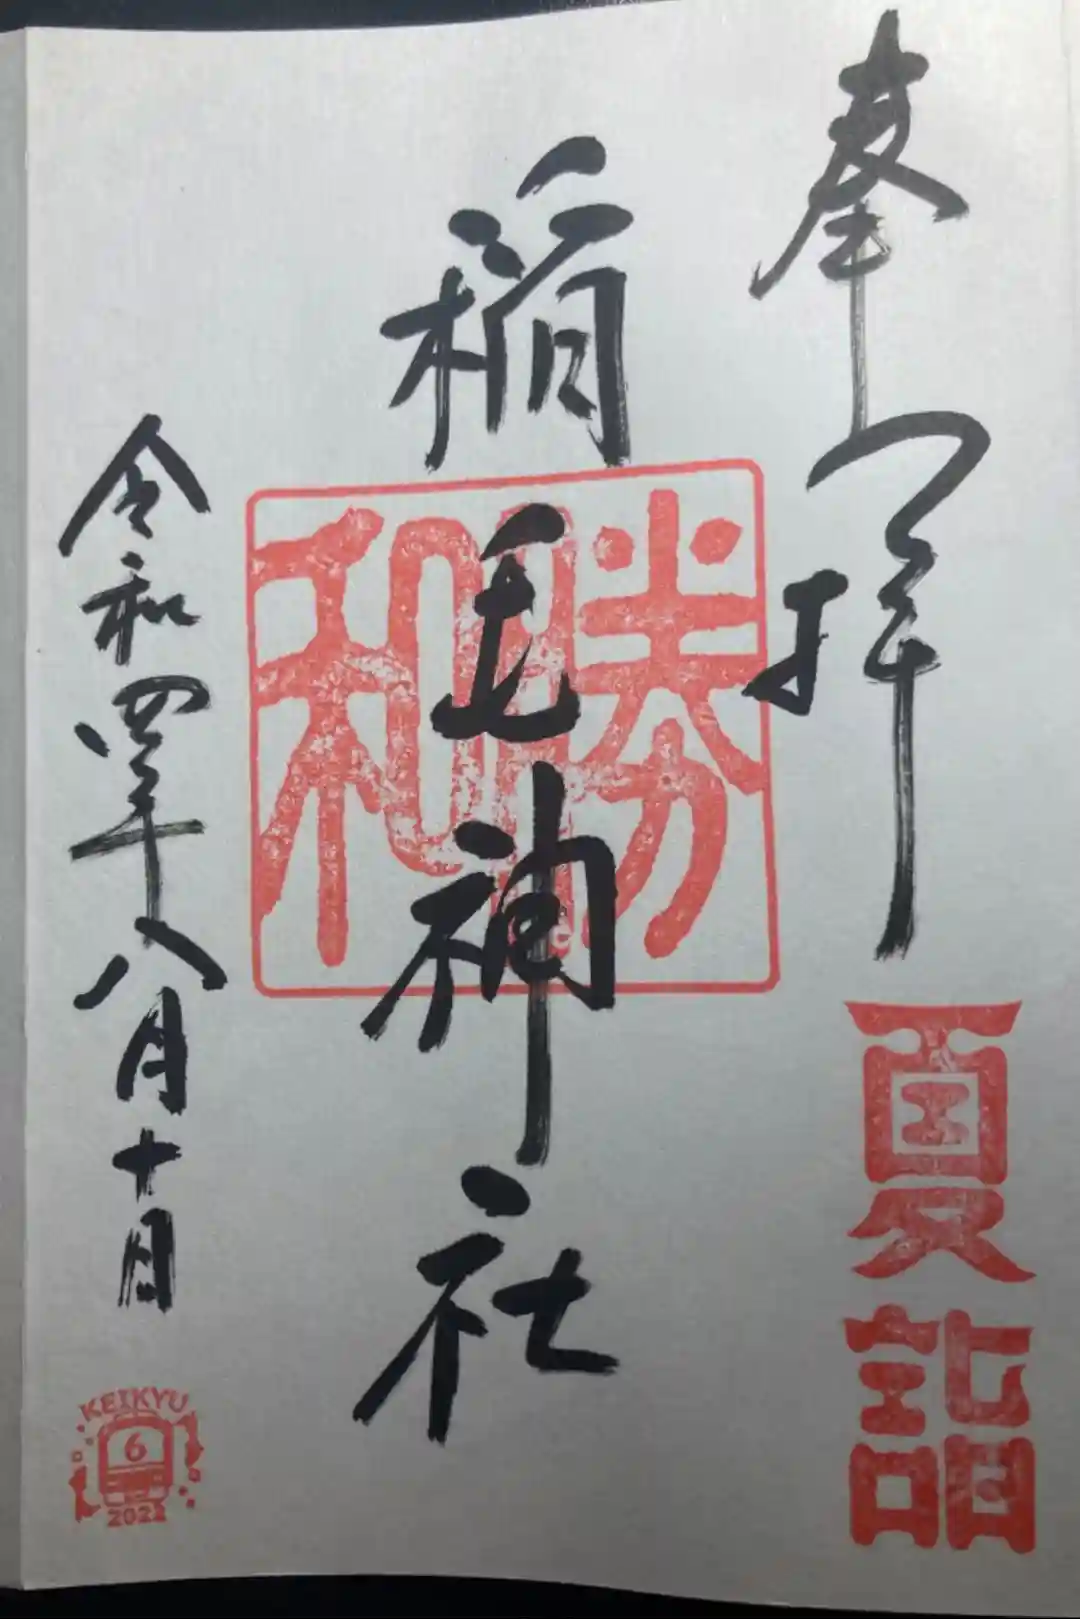 奉拝
夏詣
稲毛神社
勝和
令和四年八月十日
KEIKYU
6
2022